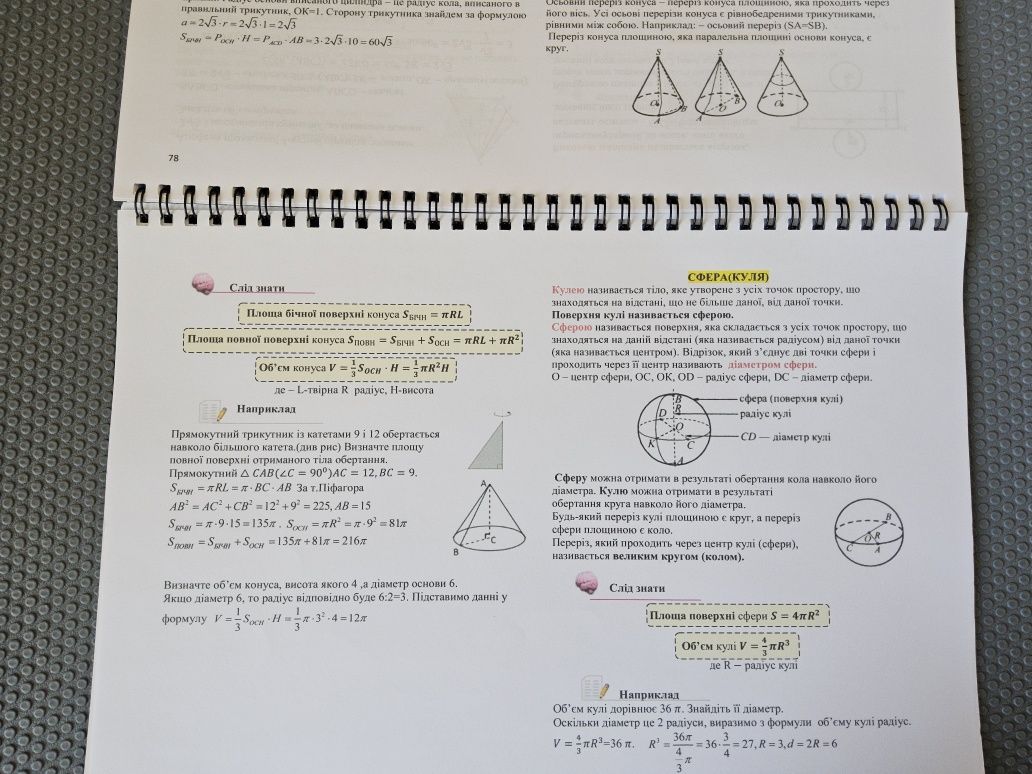 правильний трикутник, ОК=1. Сторону трикутника знайдем за формулою
a = 2√3 · r = 2√3 · 1 = 2√3
S_БІЧН = P_ОСН · H = P_ACD · AB = 3 · 2√3 · 10 = 60√3
78
Осьовий переріз конуса – переріз конуса площиною, яка проходить через
його вісь. Усі осьові перерізи конуса є рівнобедреними трикутниками,
рівними між собою. Наприклад: – осьовий переріз (SA=SB).
Переріз конуса площиною, яка паралельна площині основи конуса, є
круг.
S S S
O B A
A O B
O
Слід знати
Площа бічної поверхні конуса S_БІЧН = πRL
Площа повної поверхні конуса S_ПОВН = S_БІЧН + S_ОСН = πRL + πR²
Об’єм конуса V = 1/3 S_ОСН · H = 1/3 πR²H
де – L-твірна R радіус, H-висота
Наприклад
Прямокутний трикутник із катетами 9 і 12 обертається
навколо більшого катета.(див рис) Визначте площу
повної поверхні отриманого тіла обертання.
Прямокутний △ CAB(∠C = 90⁰)AC = 12, BC = 9.
S_БІЧН = πRL = π · BC · AB За т.Піфагора
AB² = AC² + CB² = 12² + 9² = 225, AB = 15
S_БІЧН = π · 9 · 15 = 135π . S_ОСН = πR² = π · 9² = 81π
S_ПОВН = S_БІЧН + S_ОСН = 135π + 81π = 216π
A
B C
Визначте об’єм конуса, висота якого 4 ,а діаметр основи 6.
Якщо діаметр 6, то радіус відповідно буде 6:2=3. Підставимо данні у
формулу V = 1/3 S_ОСН · H = 1/3 π · 3² · 4 = 12π
СФЕРА(КУЛЯ)
Кулею називається тіло, яке утворене з усіх точок простору, що
знаходяться на відстані, що не більше даної, від даної точки.
Поверхня кулі називається сферою.
Сферою називається поверхня, яка складається з усіх точок простору, що
знаходяться на даній відстані (яка називається радіусом) від даної точки
(яка називається центром). Відрізок, який з’єднує дві точки сфери і
проходить через її центр називають діаметром сфери.
О – центр сфери, ОС, ОК, OD – радіус сфери, DC – діаметр сфери.
B
R
D
O
K C
A
сфера (поверхня кулі)
радіус кулі
CD — діаметр кулі
Сферу можна отримати в результаті обертання кола навколо його
діаметра. Кулю можна отримати в результаті
обертання круга навколо його діаметра.
Будь-який переріз кулі площиною є круг, а переріз
сфери площиною є коло.
Переріз, який проходить через центр кулі (сфери),
називається великим кругом (колом).
B
O R
C A
Слід знати
Площа поверхні сфери S = 4πR²
Об’єм кулі V = 4/3 πR³
де R – радіус кулі
Наприклад
Об’єм кулі дорівнює 36 π. Знайдіть її діаметр.
Оскільки діаметр це 2 радіуси, виразимо з формули об’єму кулі радіус.
V = 4/3 πR³=36 π. R³ = 36π / (4/3 π) = 36 · 3/4 = 27, R = 3, d = 2R = 6